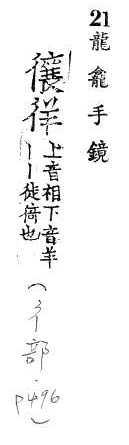 21龍龕手鏡
忀徉
上音相下音羊
丨丨徙倚也
(彳部. p496)